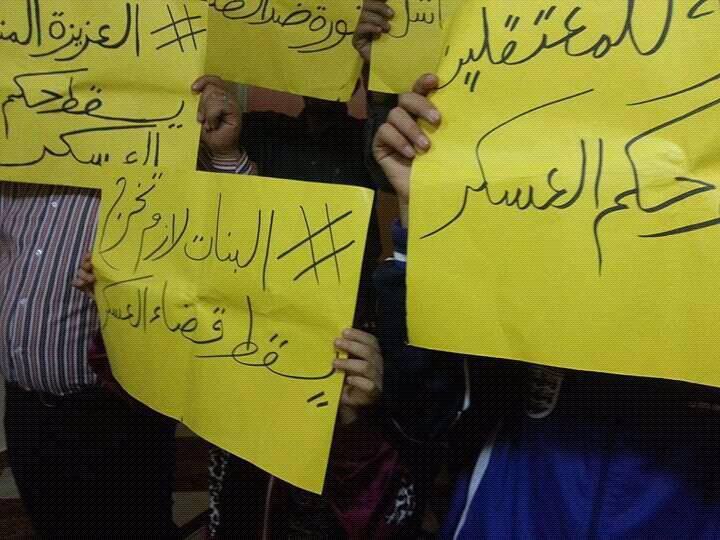 # العزيزة
يسقط حكم
العسكر
ثورة
للمعتقلين
حكم العسكر
# البنات لازم تخرج
يسقط قضاء العسكر